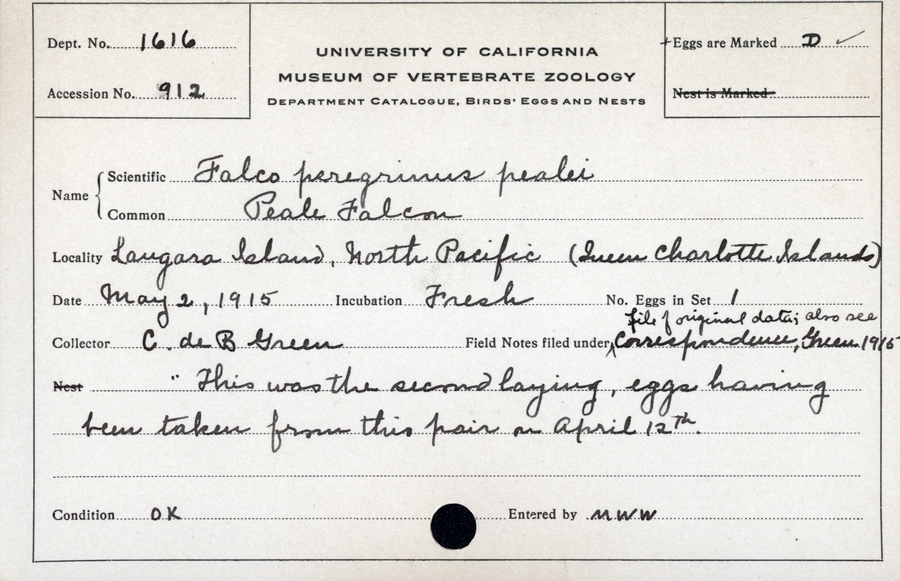 Dept. No. 1616
Accession No. 912
UNIVERSITY OF CALIFORNIA
MUSEUM OF VERTEBRATE ZOOLOGY
DEPARTMENT CATALOGUE, BIRDS' EGGS AND NESTS
+Eggs are Marked D ✓
Nest is Marked
Name { Scientific Falco peregrinus pealei
Common Peale Falcon
Locality Langara Island, North Pacific (Queen Charlotte Islands)
Date May 2, 1915 Incubation Fresh No. Eggs in Set 1
file of original data; also see
Collector C. de B Green Field Notes filed under Correspondence, Green 1915
Nest " This was the second laying, eggs having
been taken from this pair on April 12th.
Condition OK Entered by MWW